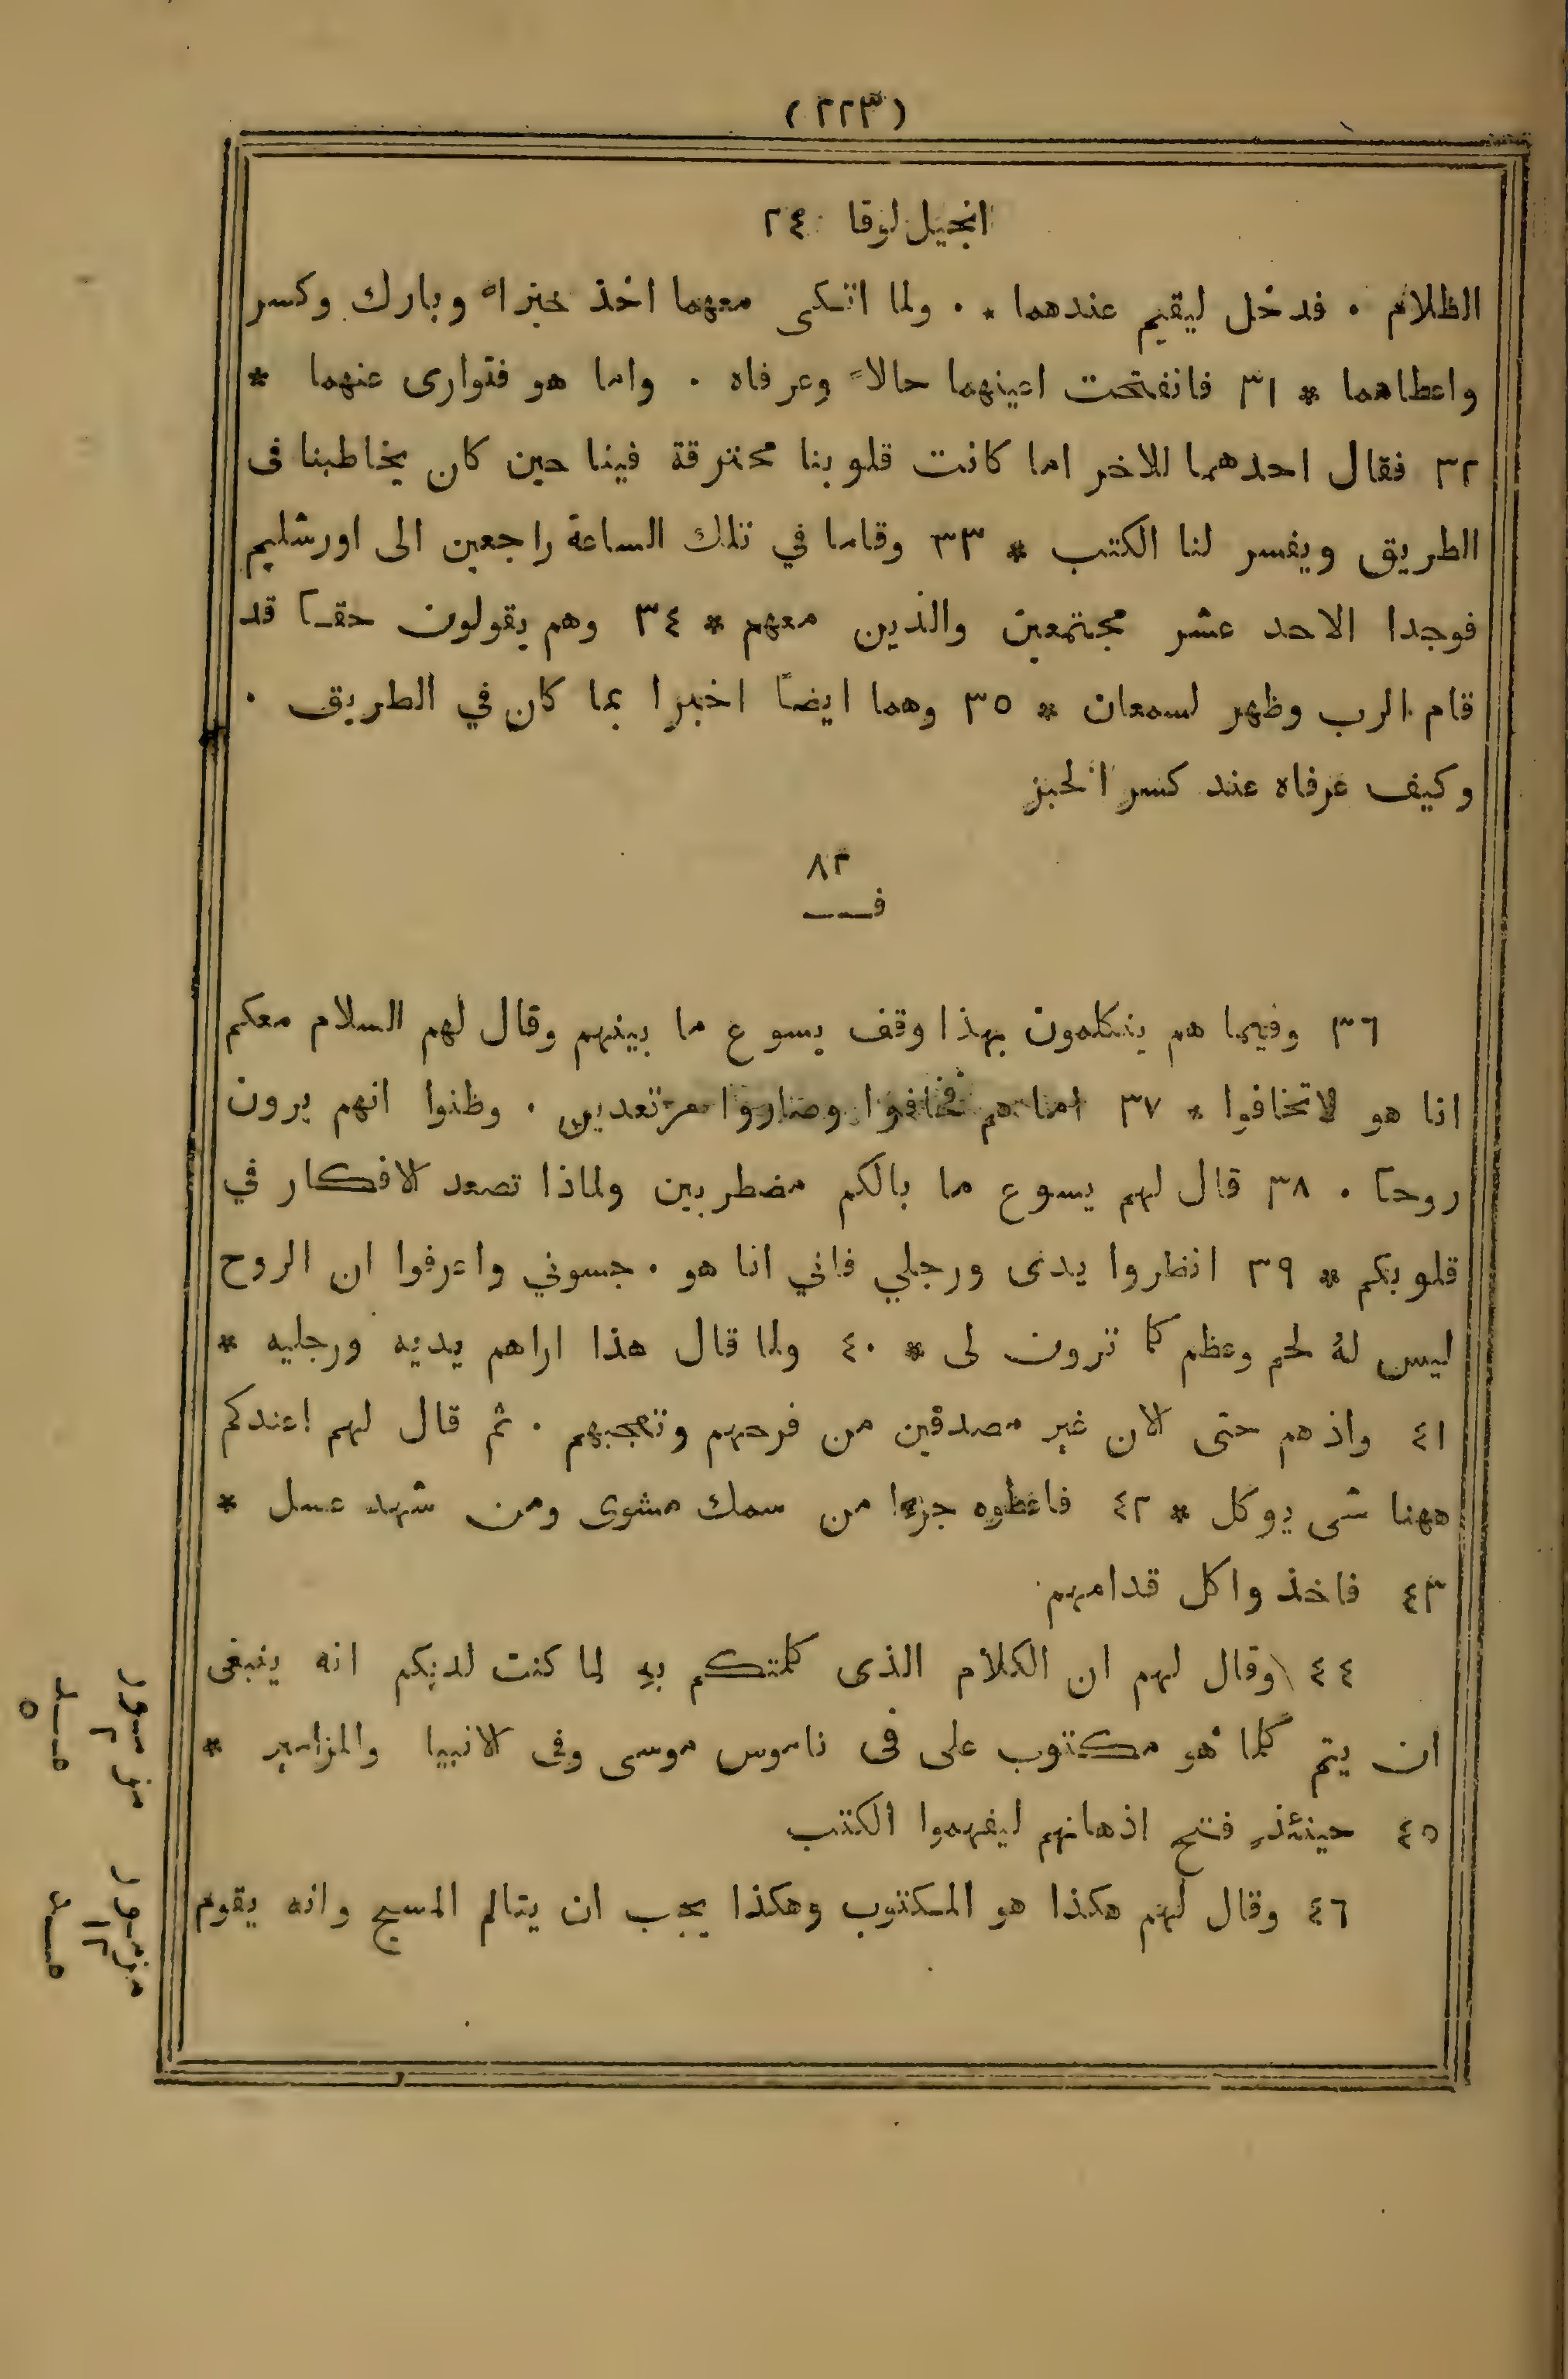 (٢٢٣)
انجيل لوقا ٢٤
الظلام ٠ فدخل ليقيم عندهما ٠٠ ولما اتكى معهما اخذ خبزاً وبارك وكسر
واعطاهما * ٣١ فانفتحت اعينهما حالاً وعرفاه ٠ واما هو فتوارى عنهما *
٣٢ فقال احدهما للاخر اما كانت قلوبنا محترقة فينا حين كان يخاطبنا فى
الطريق ويفسر لنا الكتب * ٣٣ وقاما في تلك الساعة راجعين الى اورشليم
فوجدا الاحد عشر مجتمعين والذين معهم * ٣٤ وهم يقولون حقـًا قد
قام الرب وظهر لسمعان * ٣٥ وهما ايضاً اخبرا بما كان في الطريق ٠
وكيف عرفاه عند كسر الخبز
٨٢
فـــ
٣٦ وفيما هم يتكلمون بهذا وقف يسوع ما بينهم وقال لهم السلام معكم
انا هو لاتخافوا * ٣٧ اما هم فخافوا وصاروا مرتعدين ٠ وظنوا انهم يرون
روحاً ٠ ٣٨ قال لهم يسوع ما بالكم مضطربين ولماذا تصعد الافكار في
قلوبكم * ٣٩ انظروا يدى ورجلي فاني انا هو ٠ جسوني واعرفوا ان الروح
ليس لهُ لحم وعظم كما ترون لى * ٤٠ ولما قال هذا اراهم يديه ورجليه *
٤١ واذ هم حتى الان غير مصدقين من فرحهم وتعجبهم ٠ ثم قال لهم اعندكم
ههنا شى يوكل * ٤٢ فاعطوه جزءا من سمك مشوى ومن شهد عسل *
٤٣ فاخذ واكل قدامهم
٤٤ وقال لهم ان الكلام الذى كلمتكم بهِ لما كنت لديكم انه ينبغى
ان يتم كلما هو مكتوب على فى ناموس موسى وفى الانبيا والمزامير *
٤٥ حينئذٍ فتح اذهانهم ليفهموا الكتب
٤٦ وقال لهم هكذا هو المكتوب وهكذا يجب ان يتالم المسيح وانه يقوم